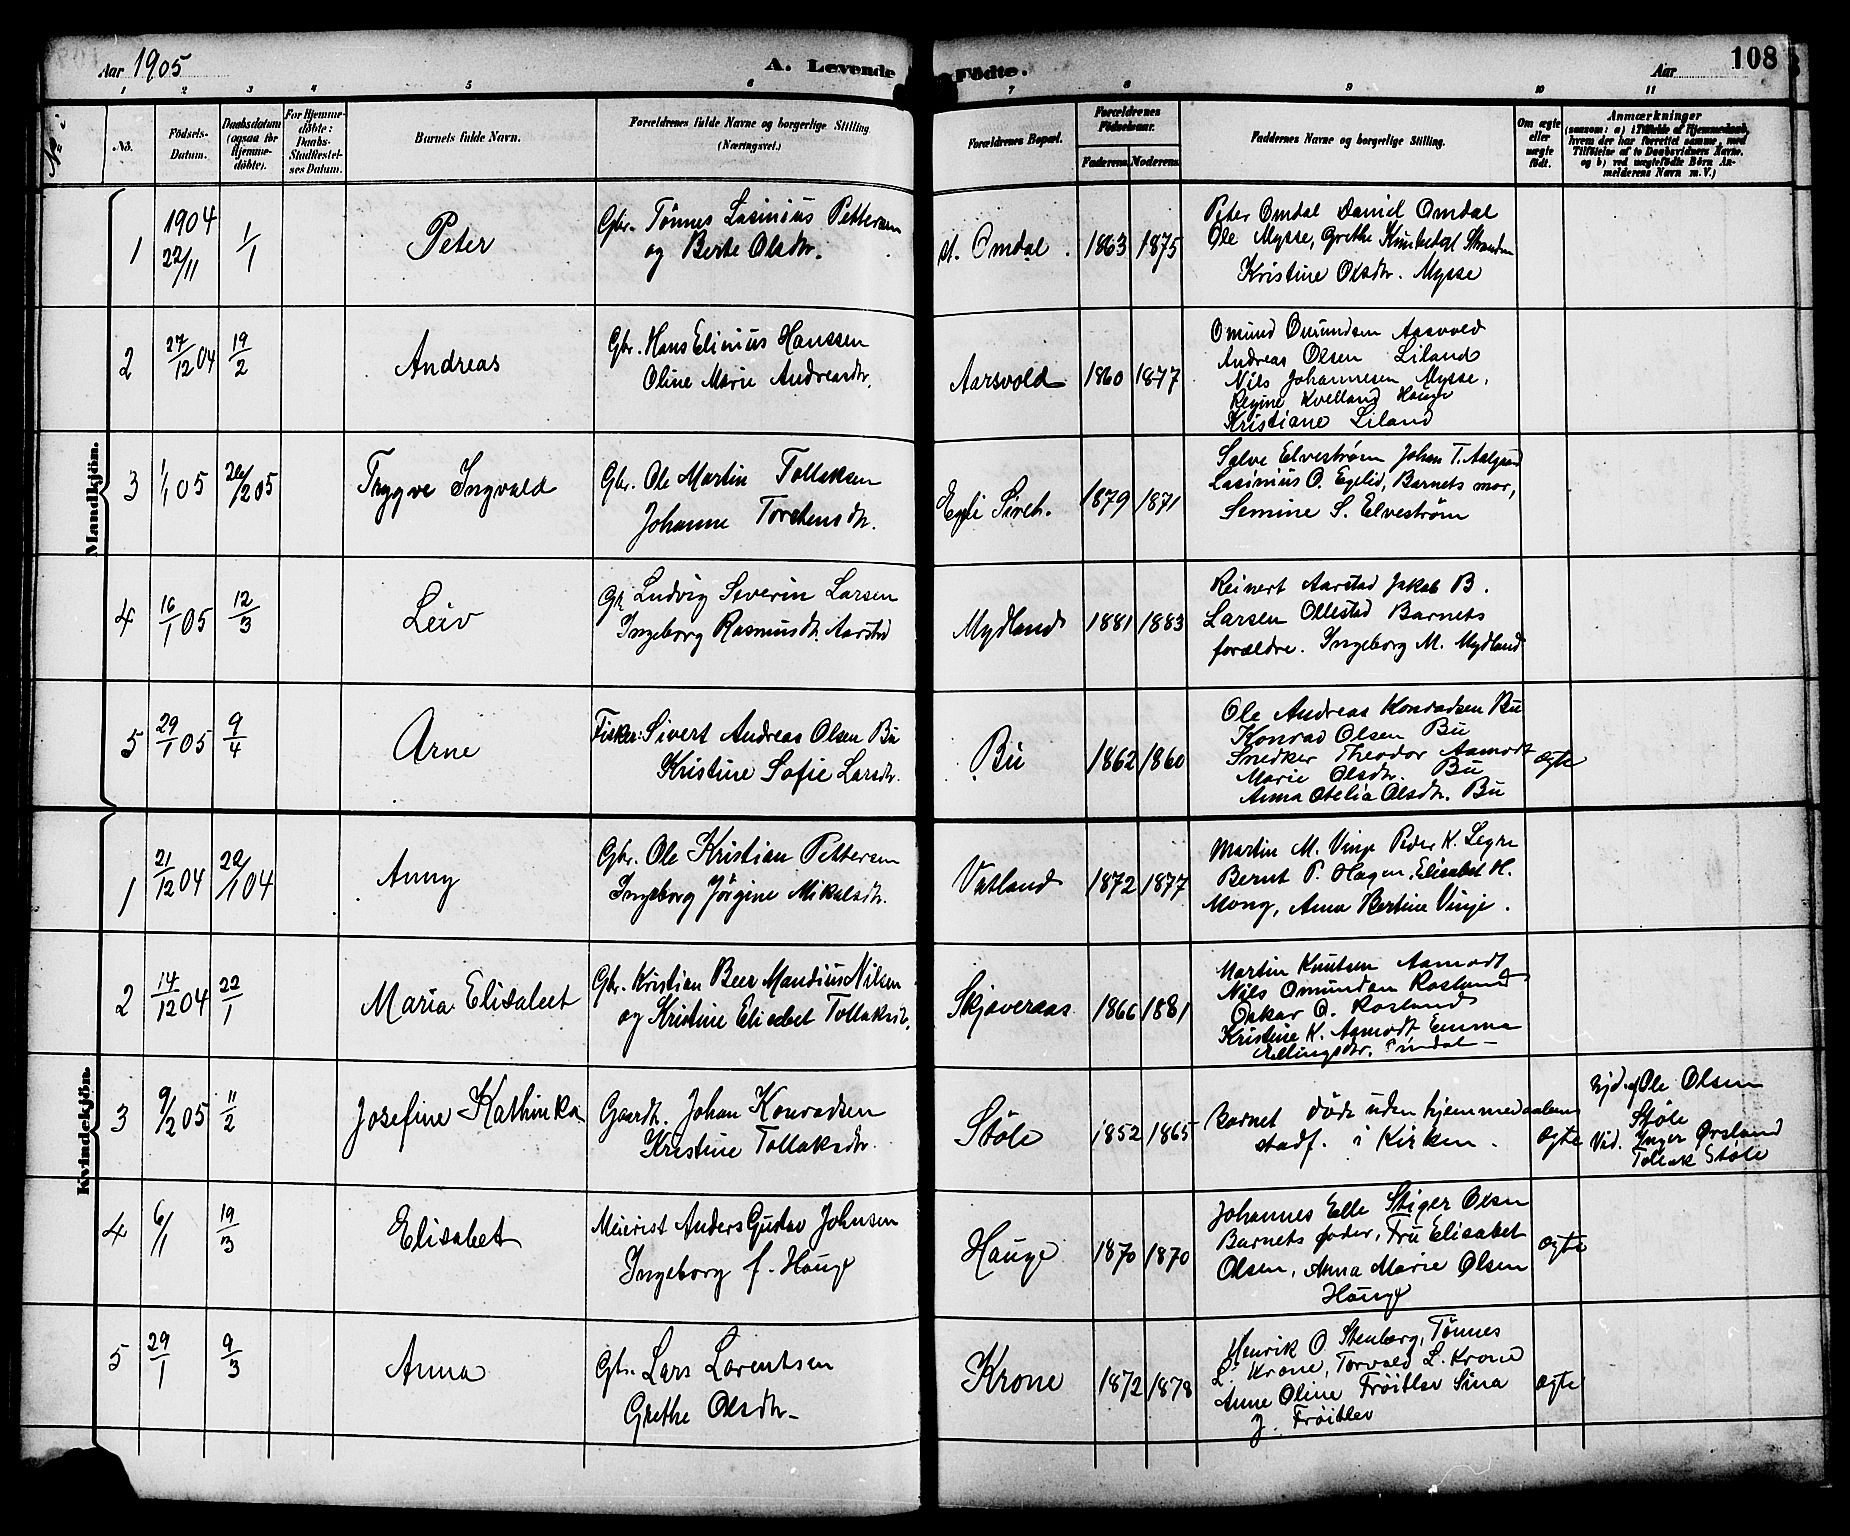 Aar 1905
A. Levende Födte.
Aar
108
1 2 3 4 5 6 7 8 9 10 11
No.
Födsels-Datum.
Daabsdatum (ogsaa for Hjemmedöbte).
For Hjemmedöbte: Daabs-Stadfestelses Datum.
Barnets fulde Navn.
Forældrenes fulde Navne og borgerlige Stilling (Næringsvei).
Forældrenes Bopæl.
Forældrenes Födselsaar.
Faderens. Moderens.
Faddernes Navne og borgerlige Stilling.
Om ægte eller uægte födt.
Anmærkninger
(saasom: a) i Tilfælde af Hjemmedaab, hvem der har forrettet samme, med Tilföielse af to Daabsvidners Navne, og b) ved uægtefödte Börn Anmelderens Navn m. V.)
Mandkjön.
1
1904 22/11
1/1
Peter
Gbr. Tönnes Lasinius Pettersen
og Berte Olsdtr.
st. Omdal
1863 1875
Peter Omdal Daniel Omdal
Ole Mysse, Grethe
Kristine Olsdtr. Mysse
2
27/12 04
19/2
Andreas
Gbr. Hans Elinius Hanssen
Oline Marie Andreasdtr.
Aarsvold
1860 1877
Omund Omundsen Aasvold
Andreas Olsen Liland
Nils Johannesen Mysse,
Regine Kvelland Hauge
Kristiane Liland
3
1/1 05
26/2 05
Trygve Ingvald
Gbr. Ole Martin Tollaksen
Johanne Torstensdtr.
Egli Sireb.
1879 1871
Salve Elveström Johan T. Aalgaard
Lasinius O. Egelid, Barnets mor,
Semine S. Elveström
4
16/1 05
12/3
Leiv
Gbr Ludvig Severin Larsen
Ingeborg Rasmusdtr. Aarstad
Mydland
1881 1883
Reinert Aarstad Jakob B.
Larsen Ollestad Barnets
forældre. Ingeborg M. Mydland
5
29/1 05
9/4
Arne
Fisker: Sivert Andreas Olsen Bu
Kristine Sofie Larsdtr.
Bu
1862 1860
Ole Andreas Konradsen Bu
Konrad Olsen Bu
Snedker Theodor Aamodt
Marie Olsdtr. Bu
Anna Otelia Olsdtr. Bu
ægte
Kvindekjön.
1
21/12 04
22/1 04
Anny
Gbr. Ole Kristian Pettersen
Ingeborg Jörgine Mikalsdtr.
Vatland
1872 1877
Martin M. Vinje Peder K. Segre
Bernt P. Hagen, Elisabet H.
Mong, Anna Bertine Vinje.
2
14/12 04
22/1
Maria Elisabet
Gbr. Kristian Beer Mandius Nilsen
og Kristine Elisabet Tollaksd.
Skjæveraas
1866 1881
Martin Knutsen Aamodt
Nils Omundsen Rosland
Oskar O. Rosland
Kristine K. Aamodt Emma
Ellingsdtr.
3
9/2 05
11/2
Josefine Kathinka
Gaardb. Johan Konradsen
Kristine Tollaksdtr.
Stöle
1852 1865
Barnet döde uden hjemmedaabens
stadf. i Kirken.
ægte
Hjd. af Ole Olsen
Stöle
Vid. Inger Ørsland
Tollak Stöle
4
6/1
19/3
Elisabet
Meierist Anders Gustav Johnsen
Ingeborg f. Hauge
Hauge
1870 1870
Johannes Elle Stiger Olsen
Barnets fader, Fru Elisabet
Olsen, Anna Marie Olsen
Hauge
ægte
5
29/1
9/3
Anna
Gbr. Lars Lorentsen
Grethe Olsdtr.
Krone
1872 1878
Henrik O. Stenberg, Tönnes
L. Krone, Torvald L. Krone
Anne Oline Fröitlev Sina
J. Fröitlev
ægte